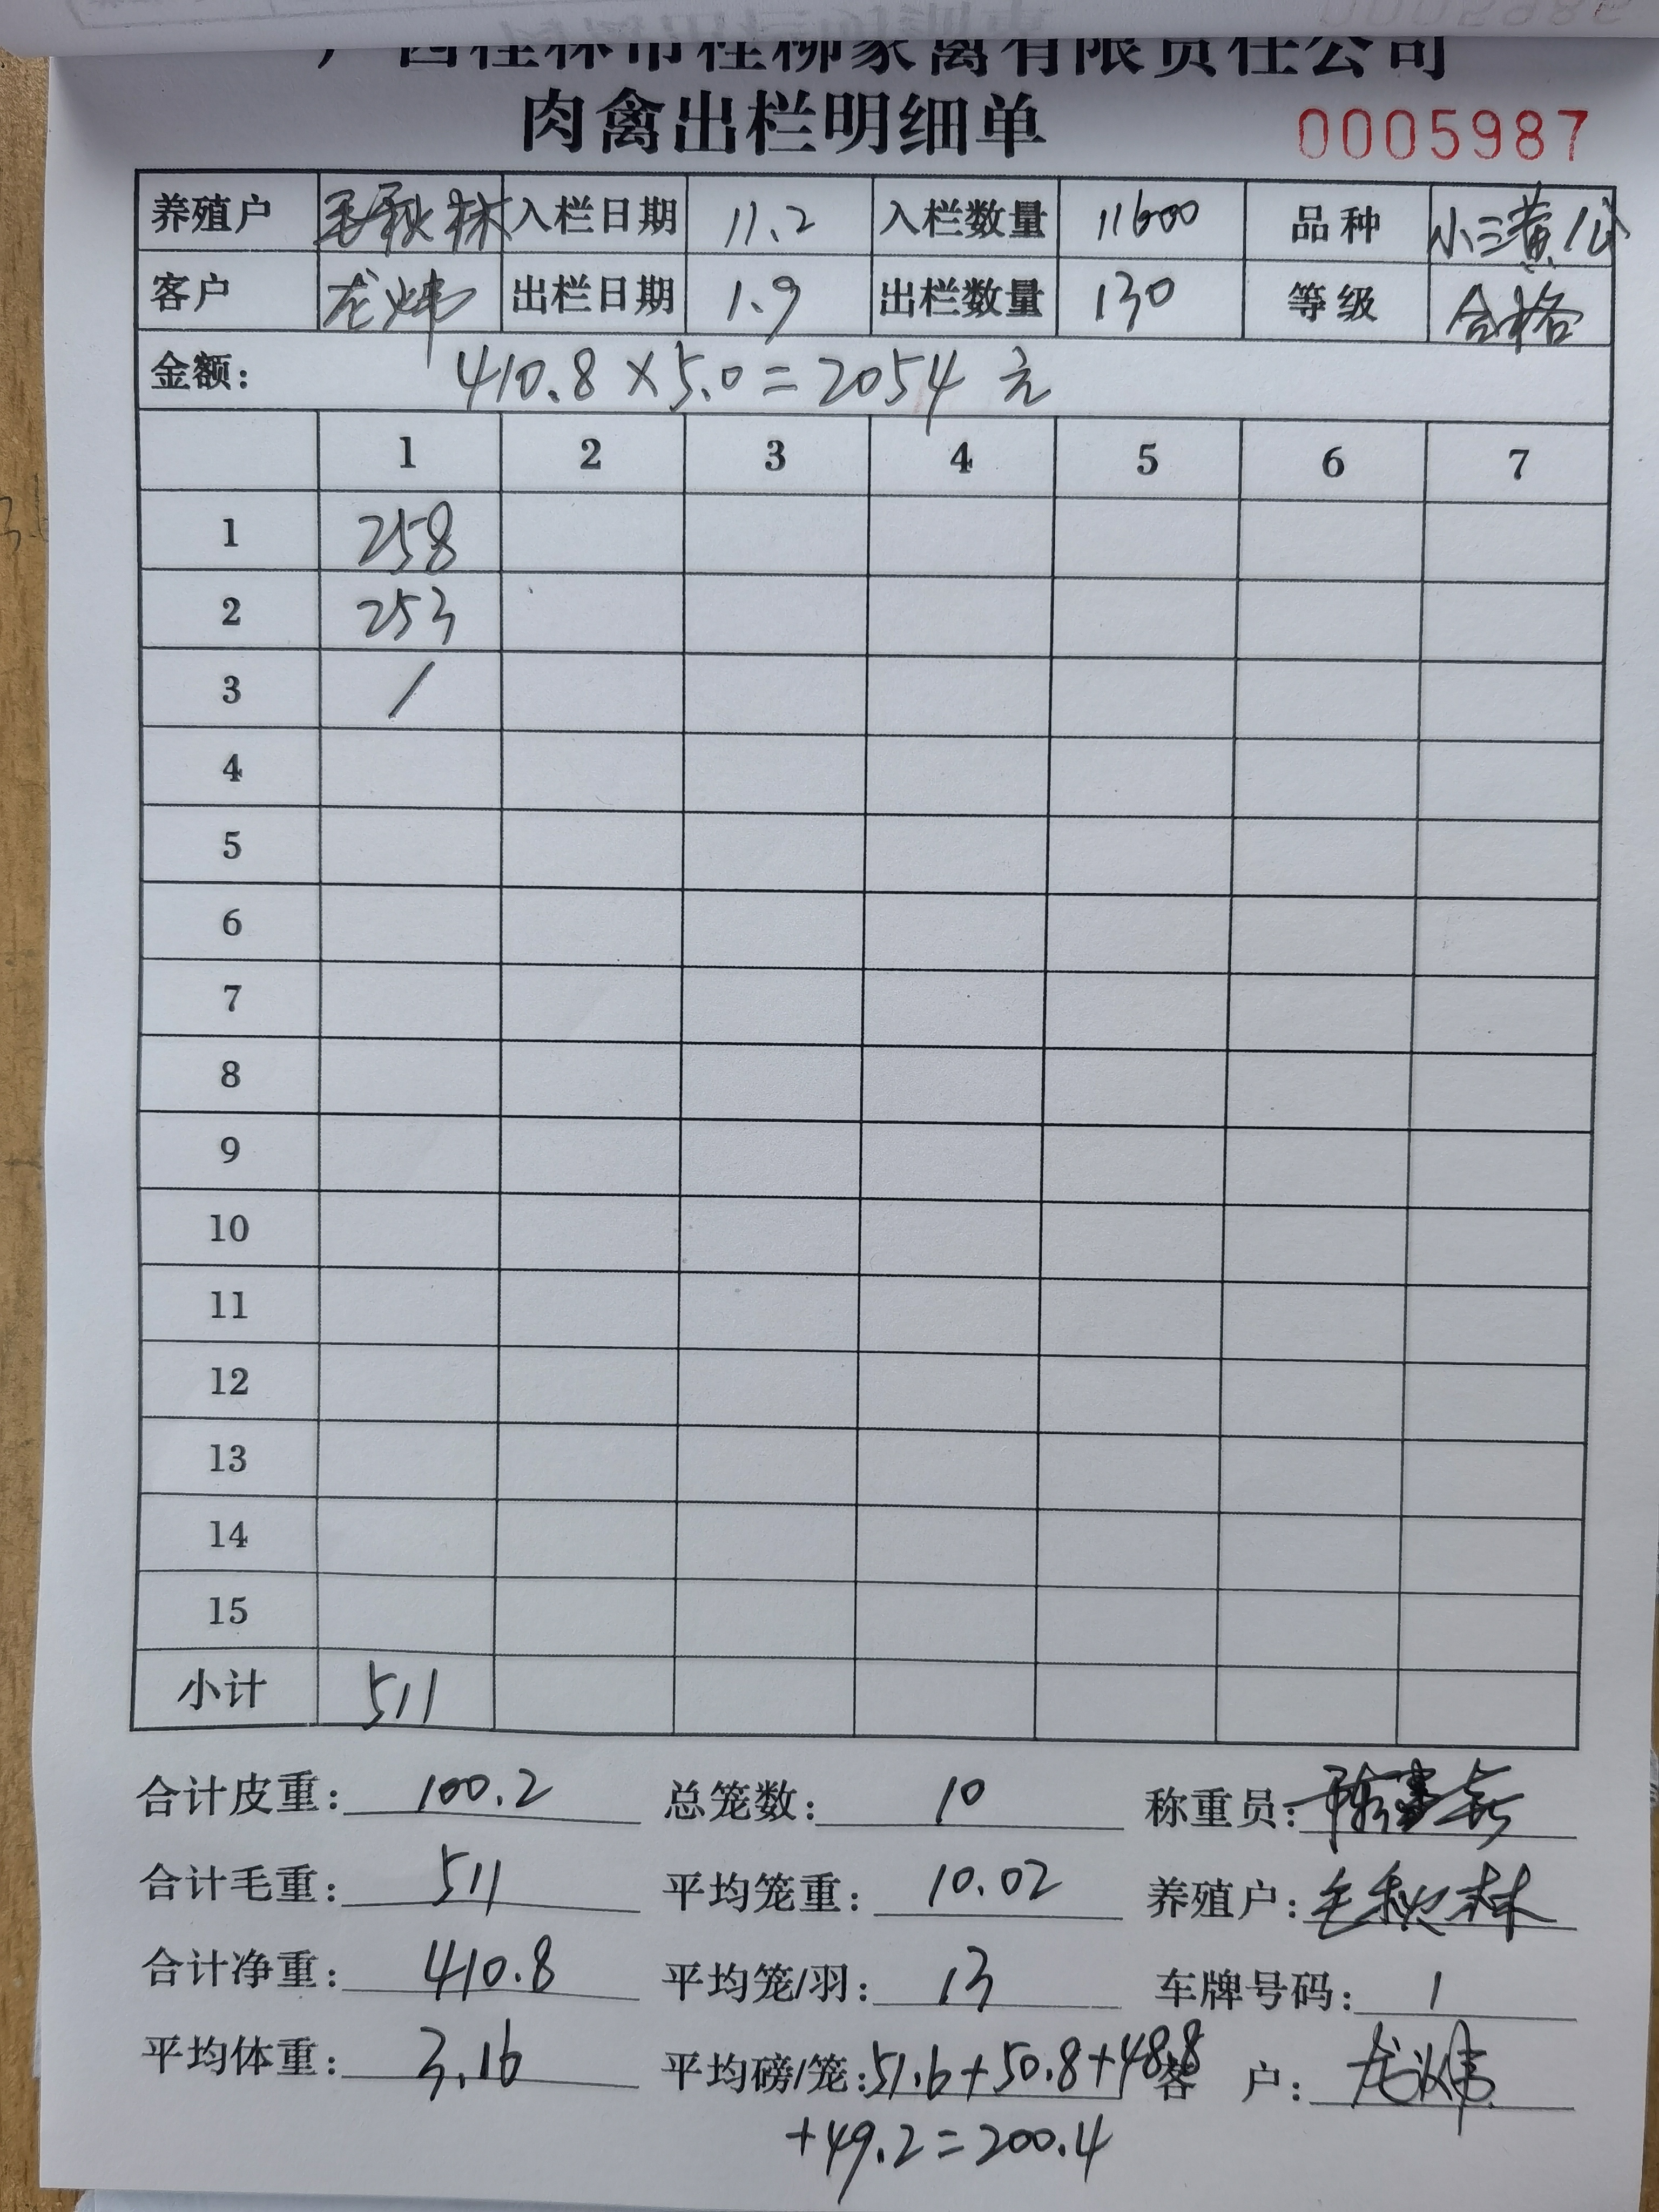 广西桂林市桂柳家禽有限责任公司
肉禽出栏明细单 0005987
养殖户 毛秋林 入栏日期 11.2 入栏数量 11600 品种 小三黄公
客户 龙炜 出栏日期 1.9 出栏数量 130 等级 合格
金额: 410.8×5.0=2054 元
1 2 3 4 5 6 7
1 258
2 253
3 /
4
5
6
7
8
9
10
11
12
13
14
15
小计 511
合计皮重: 100.2 总笼数: 10 称重员:
合计毛重: 511 平均笼重: 10.02 养殖户: 毛秋林
合计净重: 410.8 平均笼/羽: 13 车牌号码: 1
平均体重: 3.16 平均磅/笼: 51.6+50.8+48.8 客 户: 龙炜
+49.2=200.4